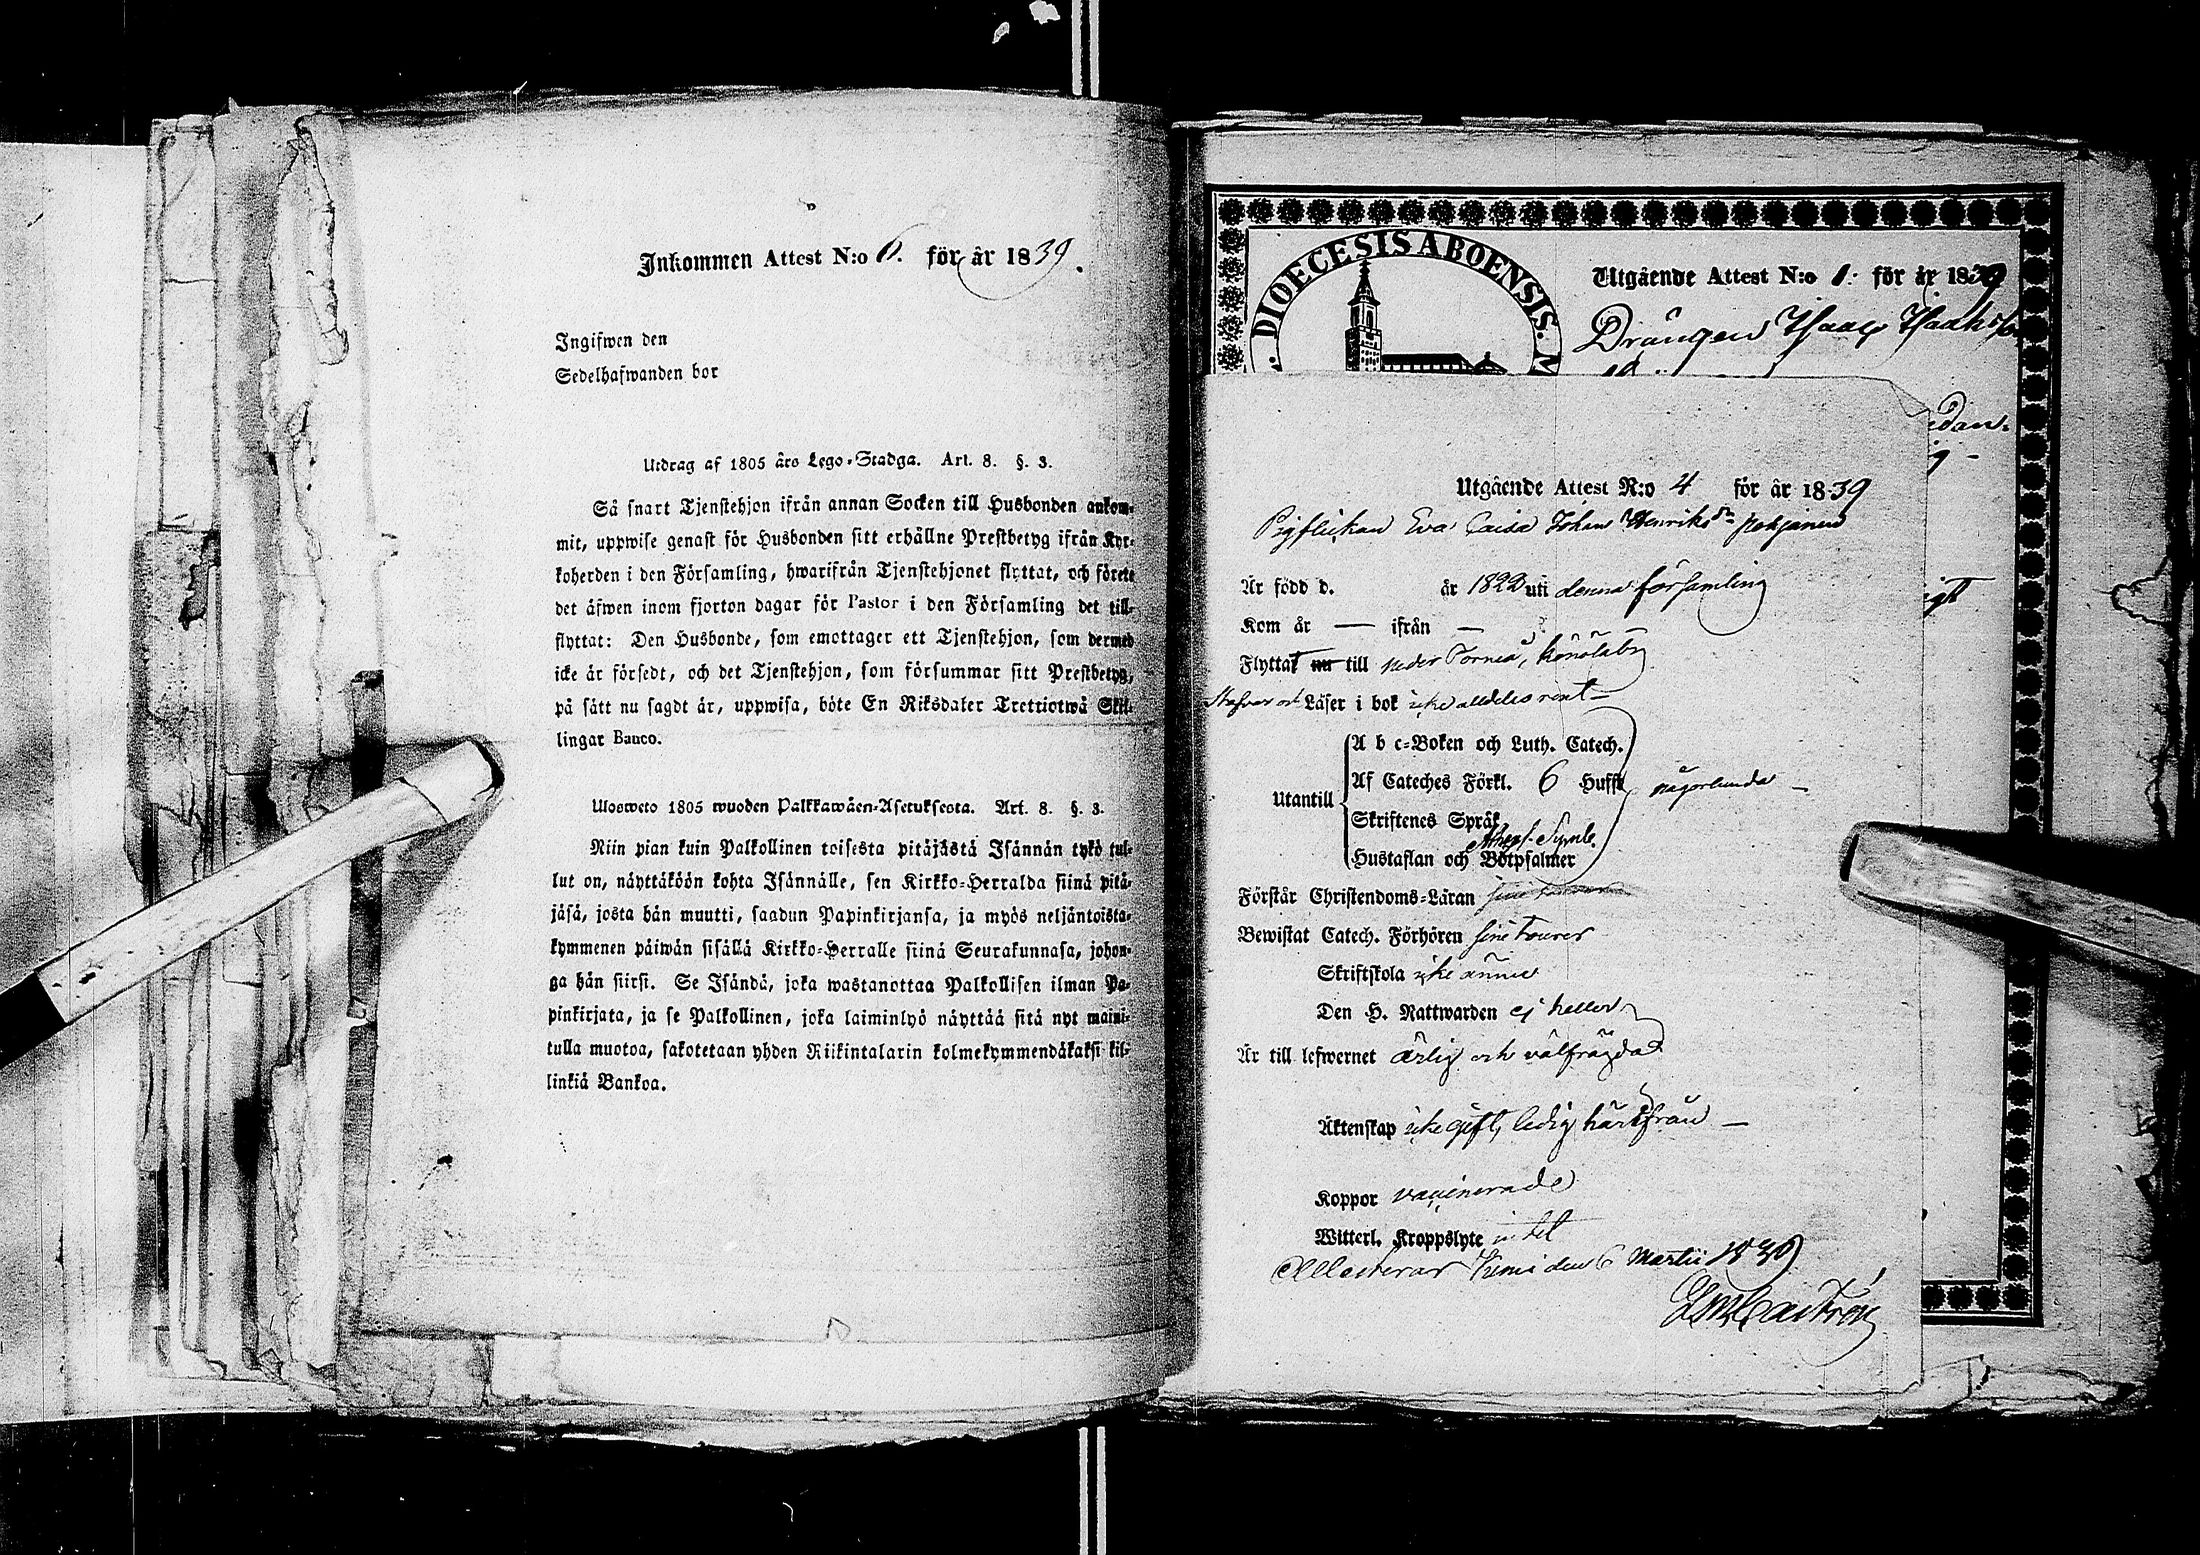 Inkommen Attest N:o 6. för år 1839.
Ingifwen den
Sedelhafwanden bor
Utdrag af 1805 års Lego-Stadga. Art. 8. §. 3.
Så snart Tjenstehjon ifrån annan Socken till Husbonden ankom-
mit, uppwise genast för Husbonden sitt erhållne Prestbetyg ifrån Kyr-
koherden i den Församling, hwarifrån Tjenstehjonet flyttat, och förete
det äfwen inom fjorton dagar för Pastor i den Församling det till-
flyttat: Den Husbonde, som emottager ett Tjenstehjon, som dermed
icke är försedt, och det Tjenstehjon, som försummar sitt Prestbetyg,
på sätt nu sagdt är, uppwisa, böte En Riksdaler Trettiotwå Skil-
lingar Banco.
Ulosweto 1805 wuoden Palkkawäen-Asetuksesta. Art. 8. §. 3.
Niin pian kuin Palkollinen toisesta pitäjästä Isännän tykö tul-
lut on, näyttäköön kohta Isännälle, sen Kirkko-Herralda siinä pitä-
jäsä, josta hän muutti, saadun Papinkirjansa, ja myös neljäntoista-
kymmenen päiwän sisällä Kirkko-Herralle siinä Seurakunnasa, johon-
ga hän siirsi. Se Isändä, joka wastanottaa Palkollisen ilman Pa-
pinkirjata, ja se Palkollinen, joka laiminlyö näyttää sitä nyt maini-
tulla muotoa, sakotetaan yhden Riikintalarin kolmekymmendäkaksi kil-
linkiä Bankoa.
DIOECESIS ABOENSIS.
Utgående Attest N:o 1. för år 1839
Drängen Isaac Isaksson
Utgående Attest N:o 4 för år 1839
Pigflickan Eva Caisa Johan Henriksdr Pohjanen
Är född d. år 1822 uti denna församling
Kom år — ifrån —
Flyttat nu till neder Torneå,
Stafvar och Läser i bok icke alldeles rent —
A b c-Boken och Luth. Catech.
Utantill Af Cateches Förkl. 6 Hufst någorlunda —
Skriftenes Språk
Athan. Symb.
Hustaflan och Botpsalmer
Förstår Christendoms-Läran
Bewistat Catech. Förhören
Skriftskola icke ännu
Den H. Nattwarden ej heller
Är till lefwernet ärlig och välfrägdad
Äktenskap icke gift, ledig härifrån —
Koppor vaccinerade
Witterl. Kroppslyte intet
Attesterar Kemi den 6 Martii 1839
Castrén